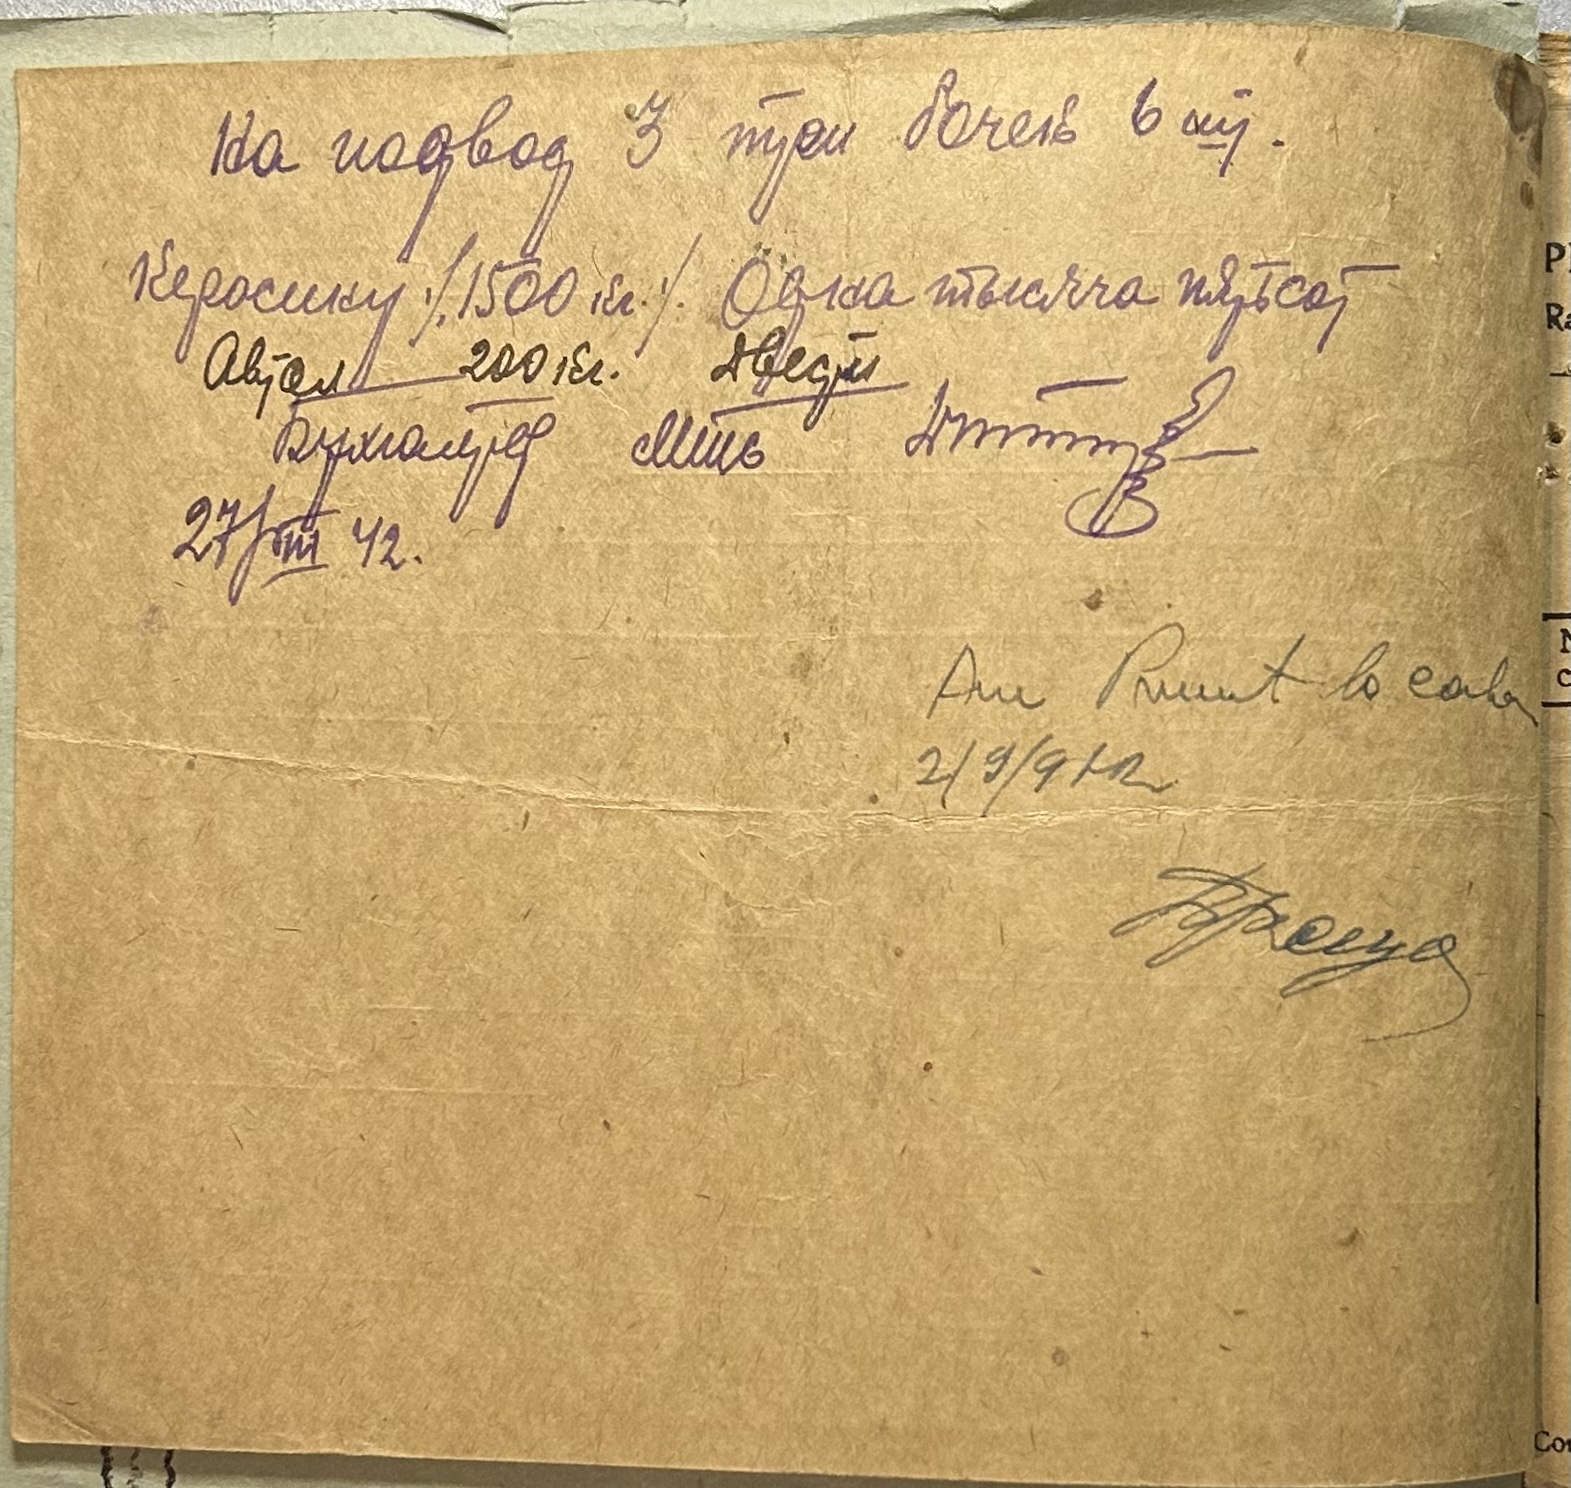 На подвод 3 три бочек 6 шт.
Керосину /.1500 кг./. Одна тысяча пятьсот
Автол 200 кг. Двести
Бухгалтер
27/VIII 42.
Am Primit
2/9/942
Pl
Ra
N
c
Con